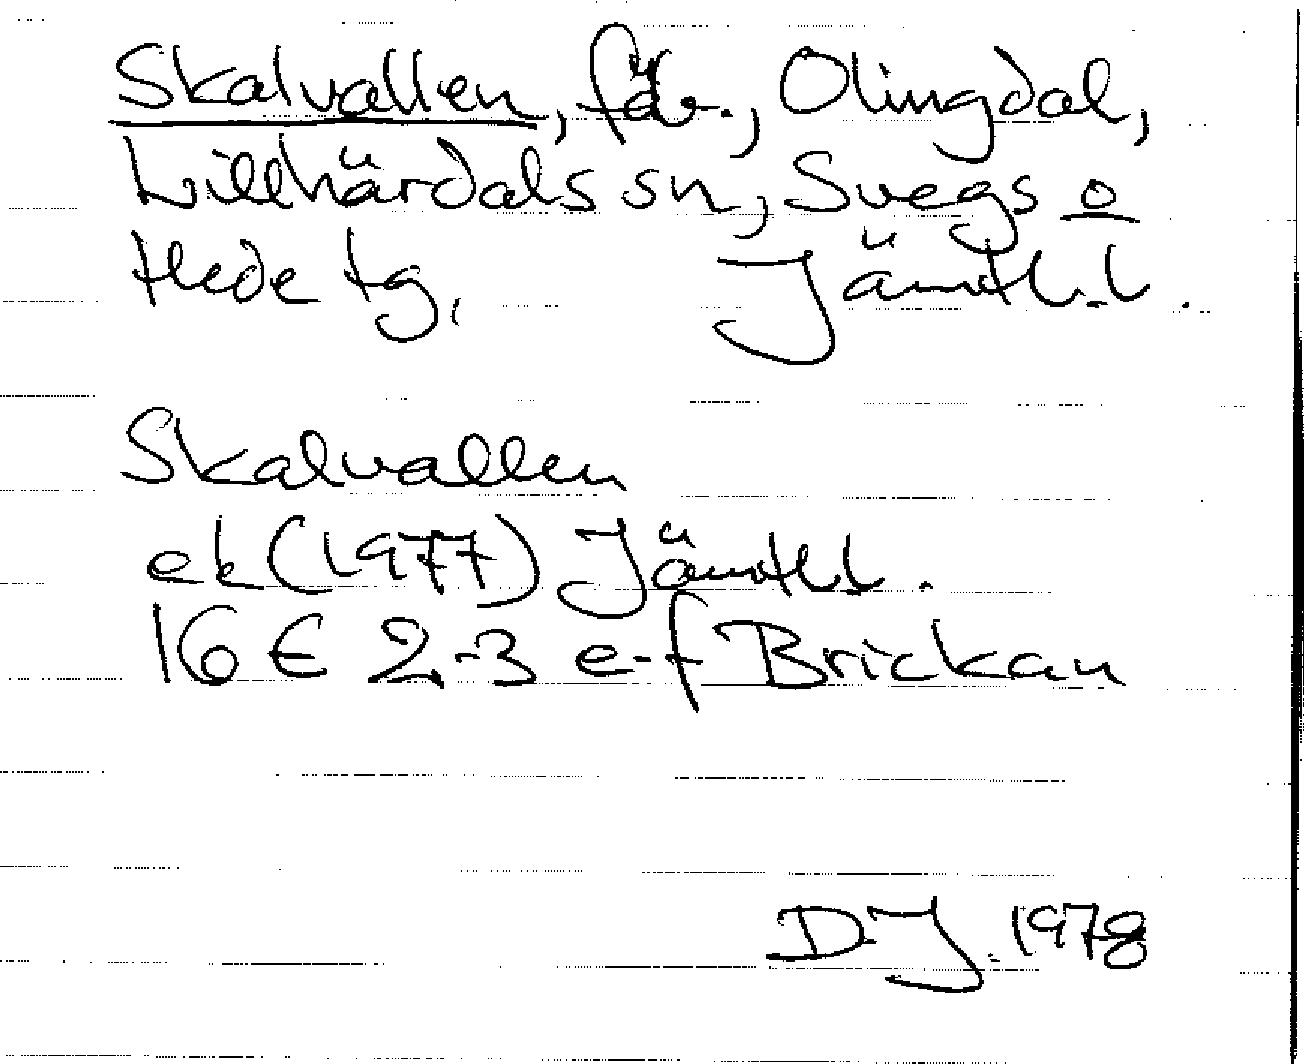 Skalvallen, fäb., Olingdal,
Lillhärdals sn, Svegs o
Hede tg, Jämtl. l.
Skalvallen
ek (1977) Jämtl. l.
16 E 2-3 e-f Brickan
D.J. 1978